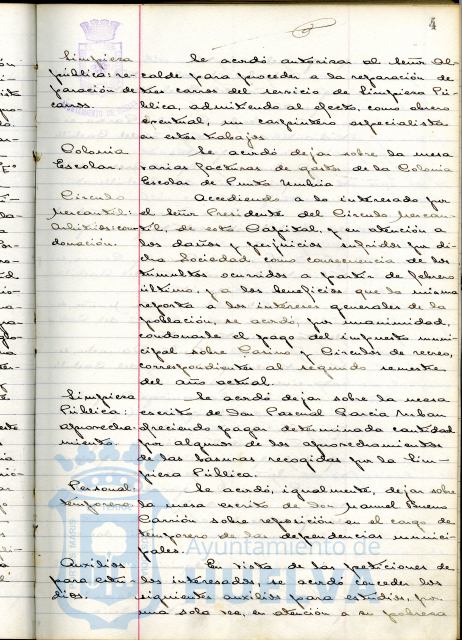 4
Limpieza
pública: re-
paración de
carros.
Se acordó autorizar al Señor Al-
calde para proceder a la reparación de
tres carros del servicio de Limpieza Pú-
blica, admitiendo al efecto, como obrero
eventual, un carpintero especialista
en estos trabajos.
Colonia
Escolar.
Se acordó dejar sobre la mesa
varias facturas de gastos de la Colonia
Escolar de Punta Umbría.
Círculo
Mercantil:
Arbitrios: con-
donación.
Accediendo a lo interesado por
el Señor Presidente del Círculo Mercan-
til, de esta Capital, y en atención a
los daños y perjuicios sufridos por di-
cha Sociedad como consecuencia de los
tumultos ocurridos a partir de febrero
último, y a los beneficios que la misma
reporta a los intereses generales de la
población, se acordó, por unanimidad,
condonarle el pago del impuesto muni-
cipal sobre Casino y Círculos de recreo,
correspondientes al segundo semestre
del año actual.
Limpieza
Pública:
aprovecha-
miento.
Se acordó dejar sobre la mesa
escrito de Don Pascual García
ofreciendo pagar determinada cantidad
por algunos de los aprovechamientos
de las basuras recogidas por la Lim-
pieza Pública.
Personal:
temporero
Se acordó, igualmente, dejar sobre
la mesa escrito de Don Manuel Bueno
Carrión sobre reposición en el cargo de
temporero de las dependencias munici-
pales.
Auxilios
para estu-
dios.
En vista de las peticiones de
los interesados se acordó conceder los
siguientes auxilios para estudios, por
una sola vez, en atención a su pobreza
Ayuntamiento de
HUELVA